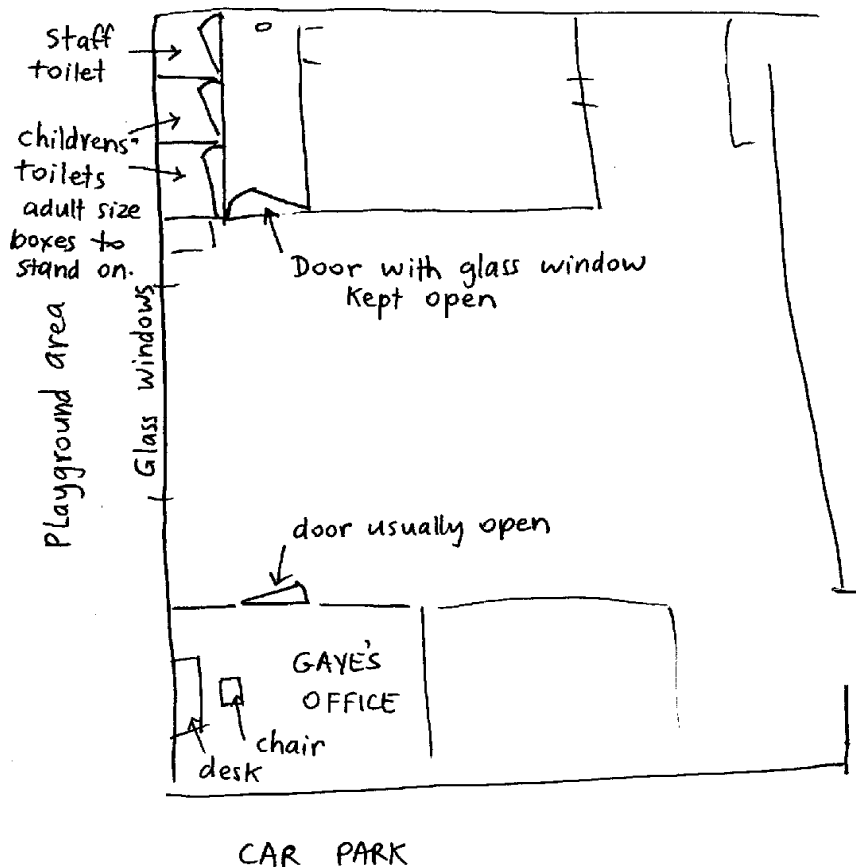 Staff
toilet
childrens'
toilets
adult size
boxes to
stand on.
Door with glass window
Kept open
Playground area
Glass windows
door usually open
GAYE'S
OFFICE
chair
desk
CAR PARK